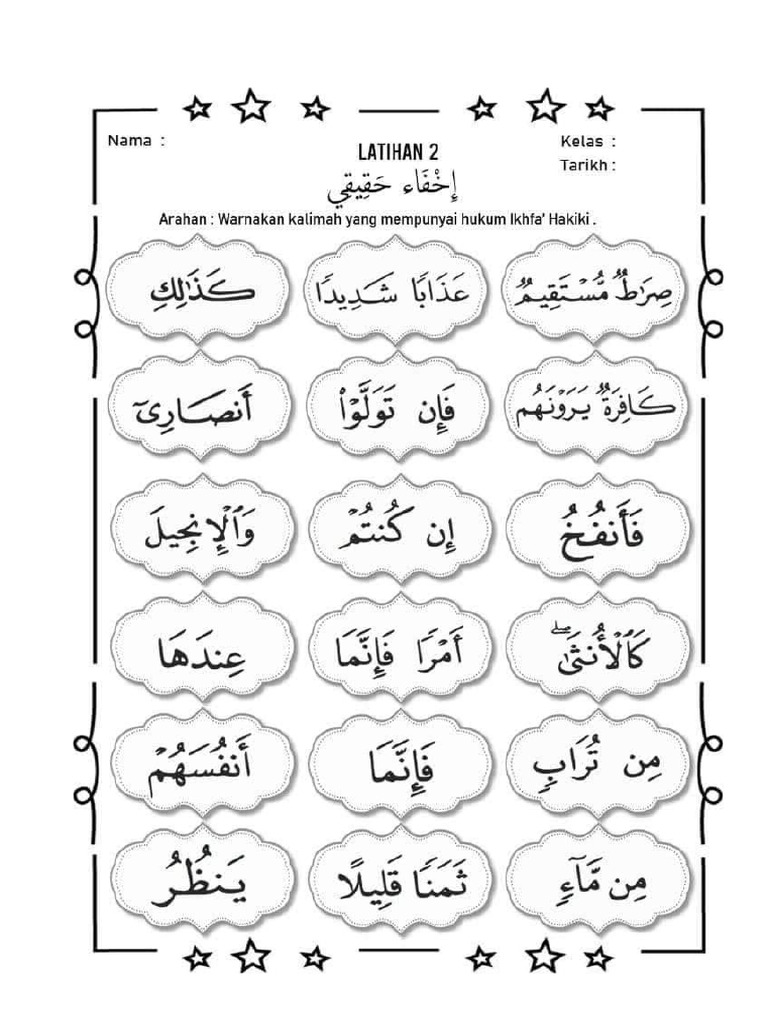 Nama :
Kelas :
Tarikh :
LATIHAN 2
إِخْفَاء حَقِيقِي
Arahan : Warnakan kalimah yang mempunyai hukum Ikhfa’ Hakiki .
صِرَٰطٌ مُّسْتَقِيمٌ
عَذَابًا شَدِيدًا
كَذَٰلِكِ
كَافِرَةٌ يَرَوْنَهُم
فَإِن تَوَلَّوْا۟
أَنصَارِىٓ
فَأَنفُخُ
إِن كُنتُمْ
وَٱلْإِنجِيلَ
كَٱلْأُنثَىٰۖ
أَمْرًا فَإِنَّمَا
عِندَهَا
مِن تُرَابٍ
فَإِنَّمَا
أَنفُسَهُمْ
مِن مَّآءٍ
ثَمَنًا قَلِيلًا
يَنظُرُ